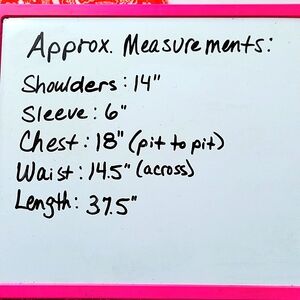 Approx. Measurements:
Shoulders: 14"
Sleeve: 6"
Chest: 18" (pit to pit)
Waist: 14.5" (across)
Length: 37.5"